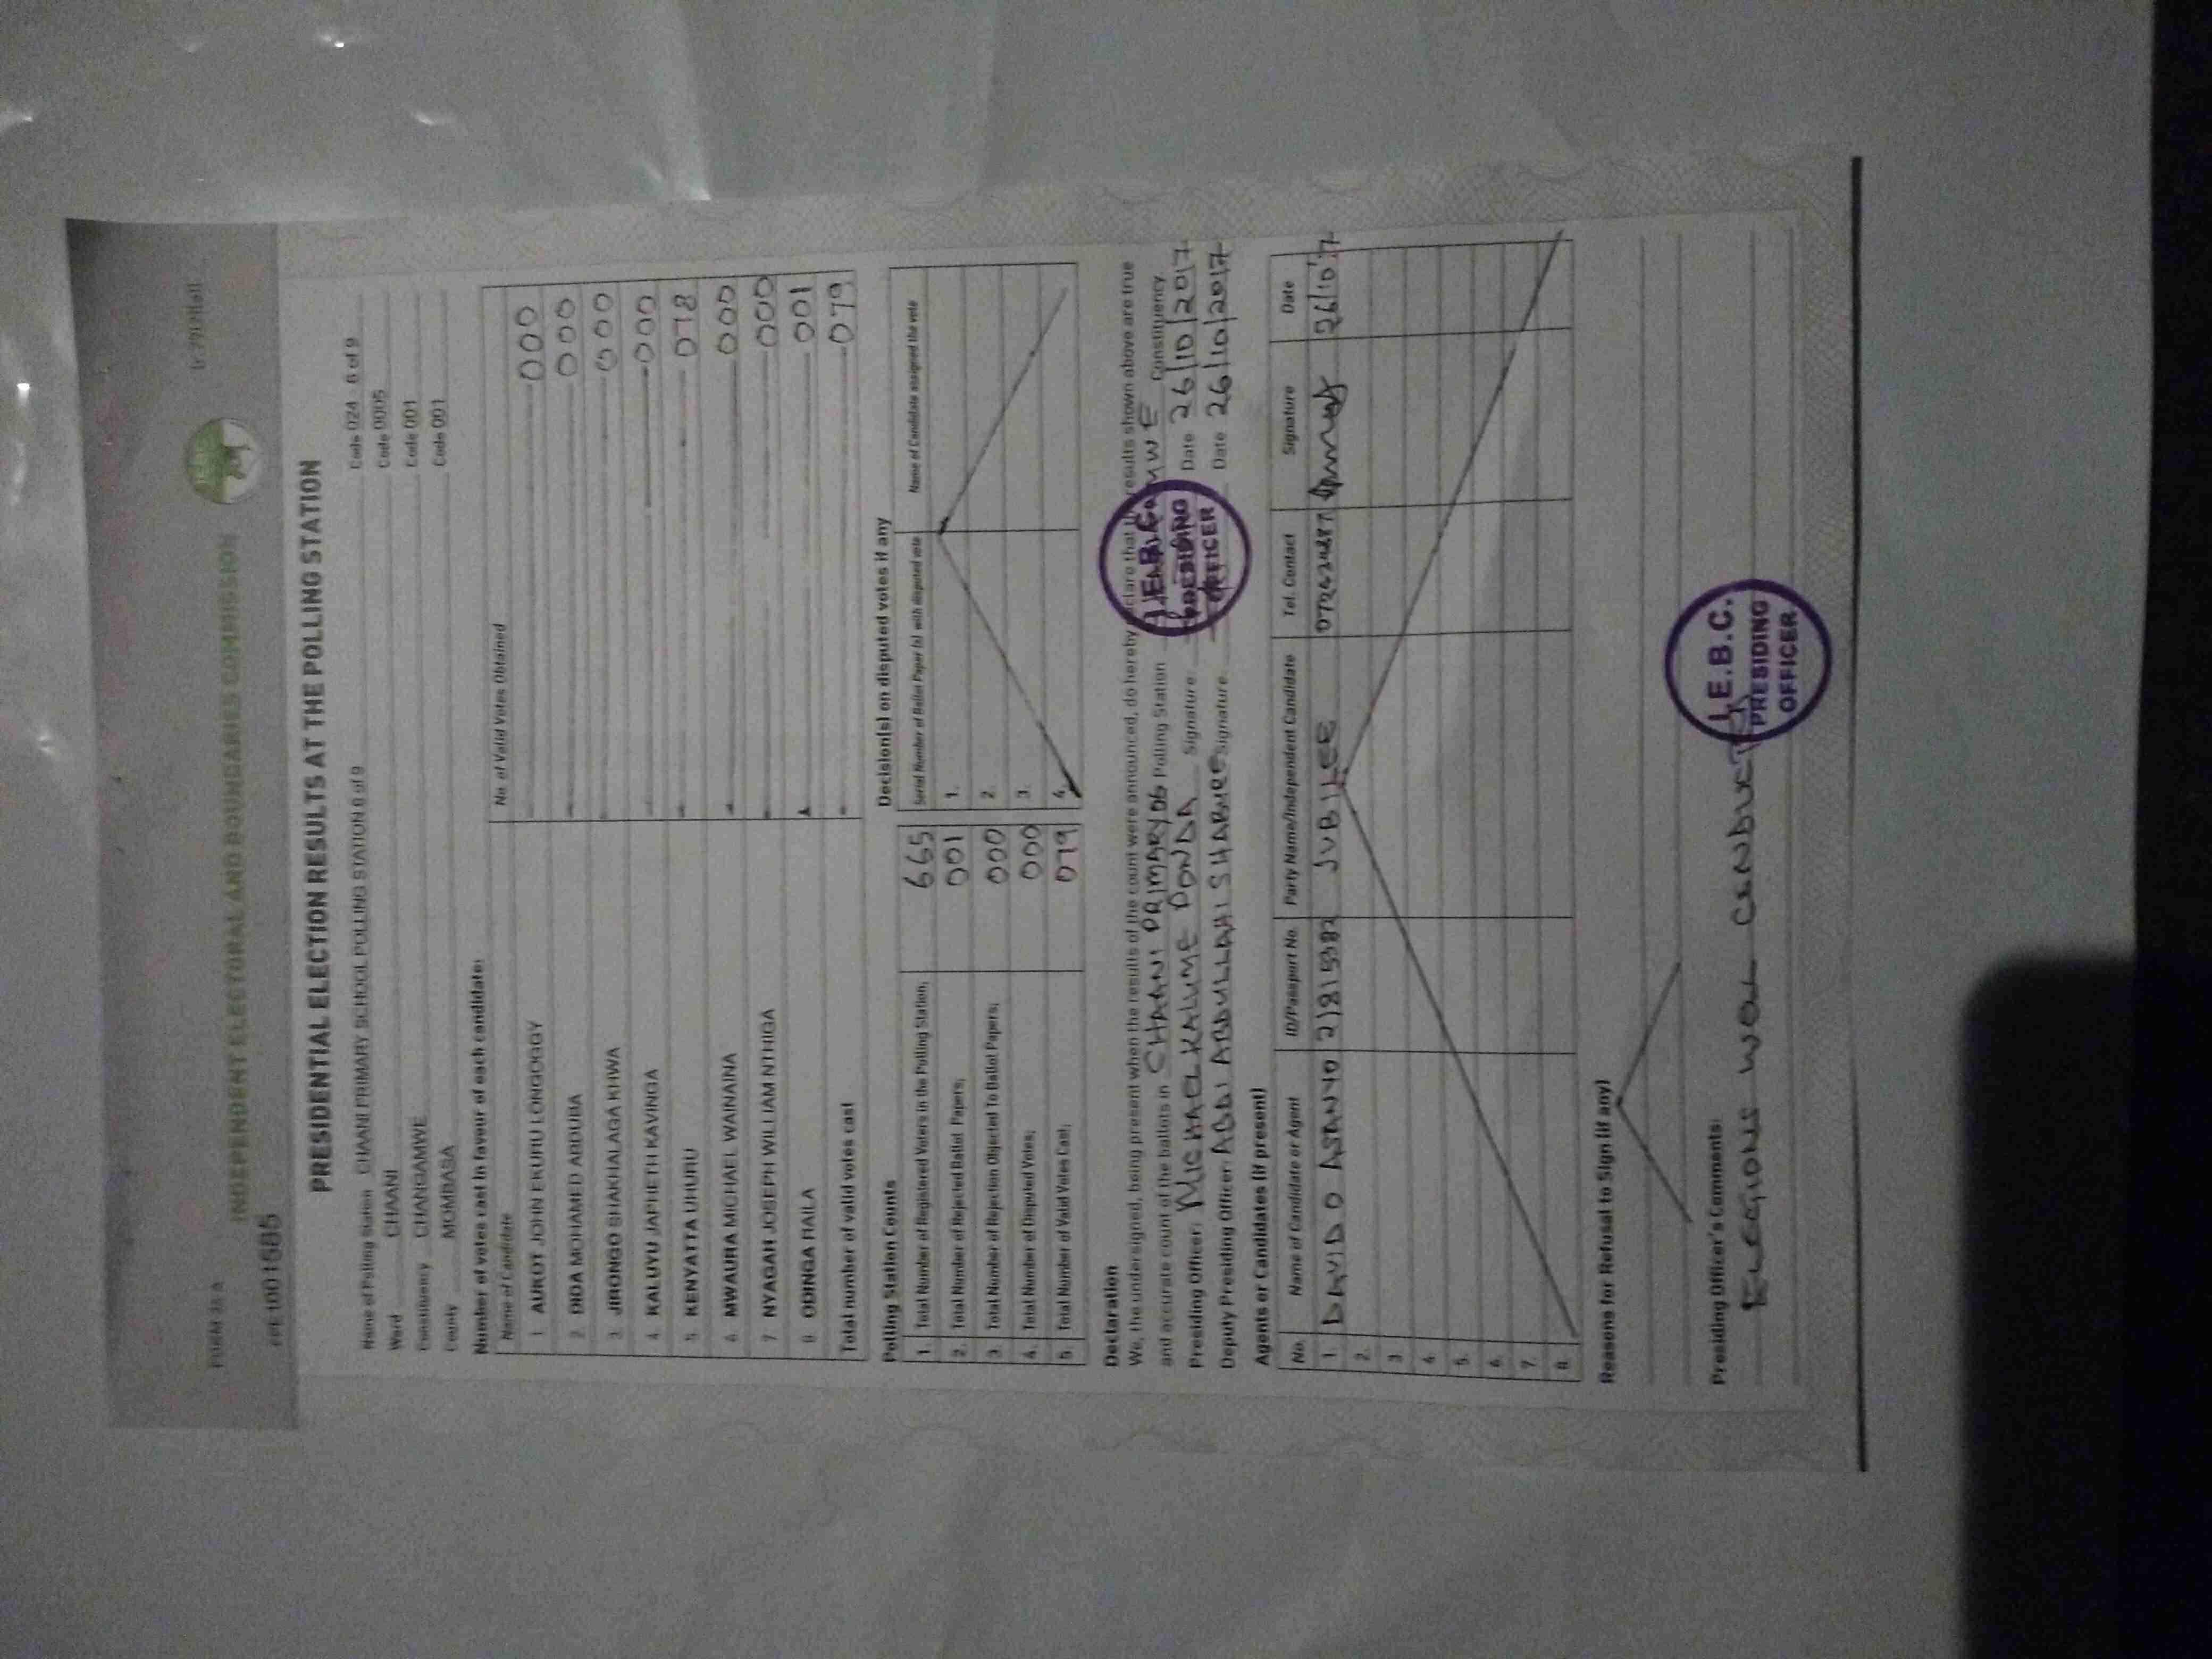 FORM 34 A
INDEPENDENT ELECTORAL AND BOUNDARIES COMMISSION
PRE1001685
PRESIDENTIAL ELECTION RESULTS AT THE POLLING STATION
Name of Polling Station CHAANI PRIMARY SCHOOL POLLING STATION 6 of 9 Code 024 6 of 9
Ward CHAANI Code 0005
Constituency CHANGAMWE Code 001
County MOMBASA Code 001
Number of votes cast in favour of each candidate:
Name of Candidate No. of Valid Votes Obtained
1 AUKOT JOHN EKURU LONGOGGY 000
2 DIDA MOHAMED ABDUBA 000
3 JIRONGO SHAKHALAGA KHWA 000
4 KALUYU JAPHETH KAVINGA 000
5 KENYATTA UHURU 078
6 MWAURA MICHAEL WAINAINA 000
7 NYAGAH JOSEPH WILLIAM NTHIGA 000
8 ODINGA RAILA 001
Total number of valid votes cast 079
Polling Station Counts
1. Total Number of Registered Voters in the Polling Station; 665
2. Total Number of Rejected Ballot Papers; 001
3. Total Number of Rejection Objected To Ballot Papers; 000
4. Total Number of Disputed Votes; 000
5. Total Number of Valid Votes Cast; 079
Decision(s) on disputed votes if any
Serial Number of Ballot Paper (s) with disputed vote Name of Candidate assigned the vote
1.
2.
3.
4.
Declaration
We, the undersigned, being present when the results of the count were announced, do hereby declare that the results shown above are true
and accurate count of the ballots in CHAANI PRIMARY 06 Polling Station Constituency
Presiding Officer: MICHAEL KALUME DONDA Signature: Date 26/10/2017
Deputy Presiding Officer: ABDI ABDULLAHI SHABURE Signature Date 26/10/2017
I.E.B.C.
PRESIDING
OFFICER
Agents or Candidates (if present)
No. Name of Candidate or Agent ID/Passport No. Party Name/Independent Candidate Tel. Contact Signature Date
1. DAVID O ASANYO JUBILEE 26/10/17
2.
3
4
5.
6.
7.
8.
Reasons for Refusal to Sign (if any)
Presiding Officer's Comments:
WELL
I.E.B.C.
PRESIDING
OFFICER